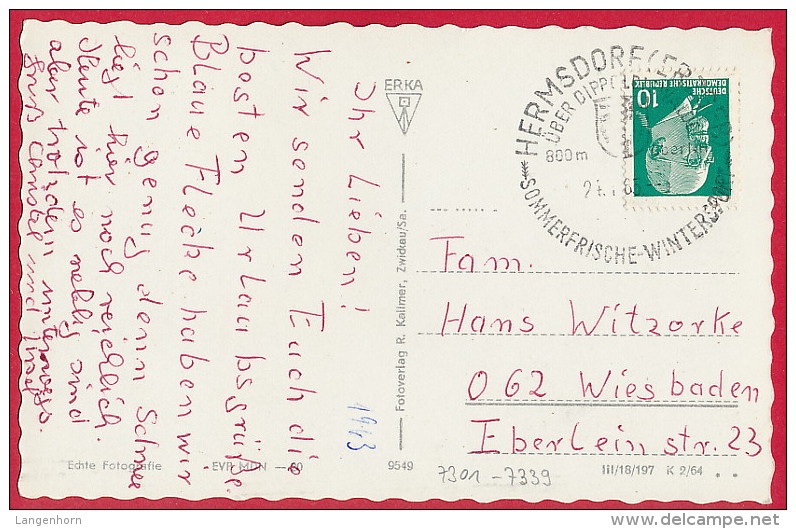 Ihr Lieben!
Wir senden Euch die
besten Urlaubsgrüße.
Blaue Flecke haben wir
schon genug denn Schnee
liegt hier noch reichlich.
Heute ist es neblig sind
aber trotzdem unterwegs.
Gruß
und
ERKA
Fotoverlag R. Kallmer, Zwickau/Sa.
HERMSDORF (ER
ÜBER DIPP
800m
SOMMERFRISCHE-WINTERSPORT
DEUTSCHE
DEMOKRATISCHE REPUBLIK
10
Fam.
Hans Witzorke
062 Wiesbaden
Eberleinstr. 23
1963
Echte Fotografie
EVP MDN —
9549
7301-7339
III/18/197 K 2/64
Langenhorn
www.delcampe.net